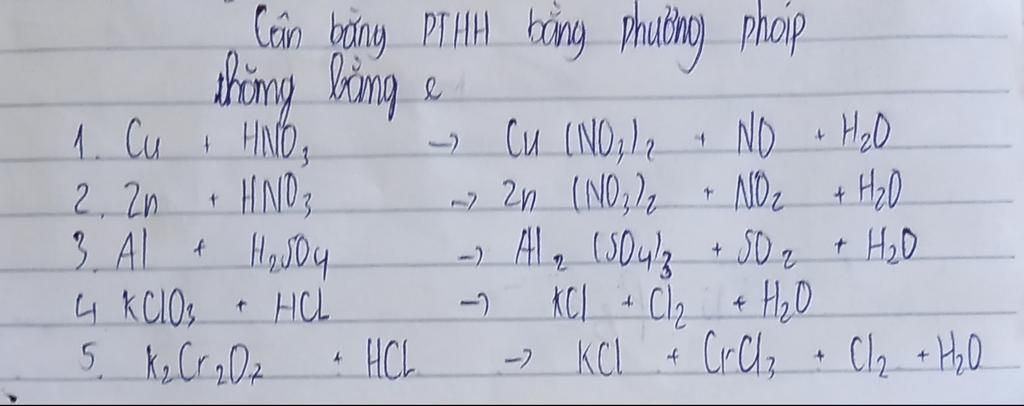 Cân bằng PTHH bằng phương pháp
thăng bằng e
1. Cu + HNO₃ → Cu (NO₃)₂ + NO + H₂O
2. Zn + HNO₃ → Zn (NO₃)₂ + NO₂ + H₂O
3. Al + H₂SO₄ → Al₂ (SO₄)₃ + SO₂ + H₂O
4 KClO₃ + HCL → KCl + Cl₂ + H₂O
5. K₂Cr₂O₇ + HCL → KCl + CrCl₃ + Cl₂ + H₂O